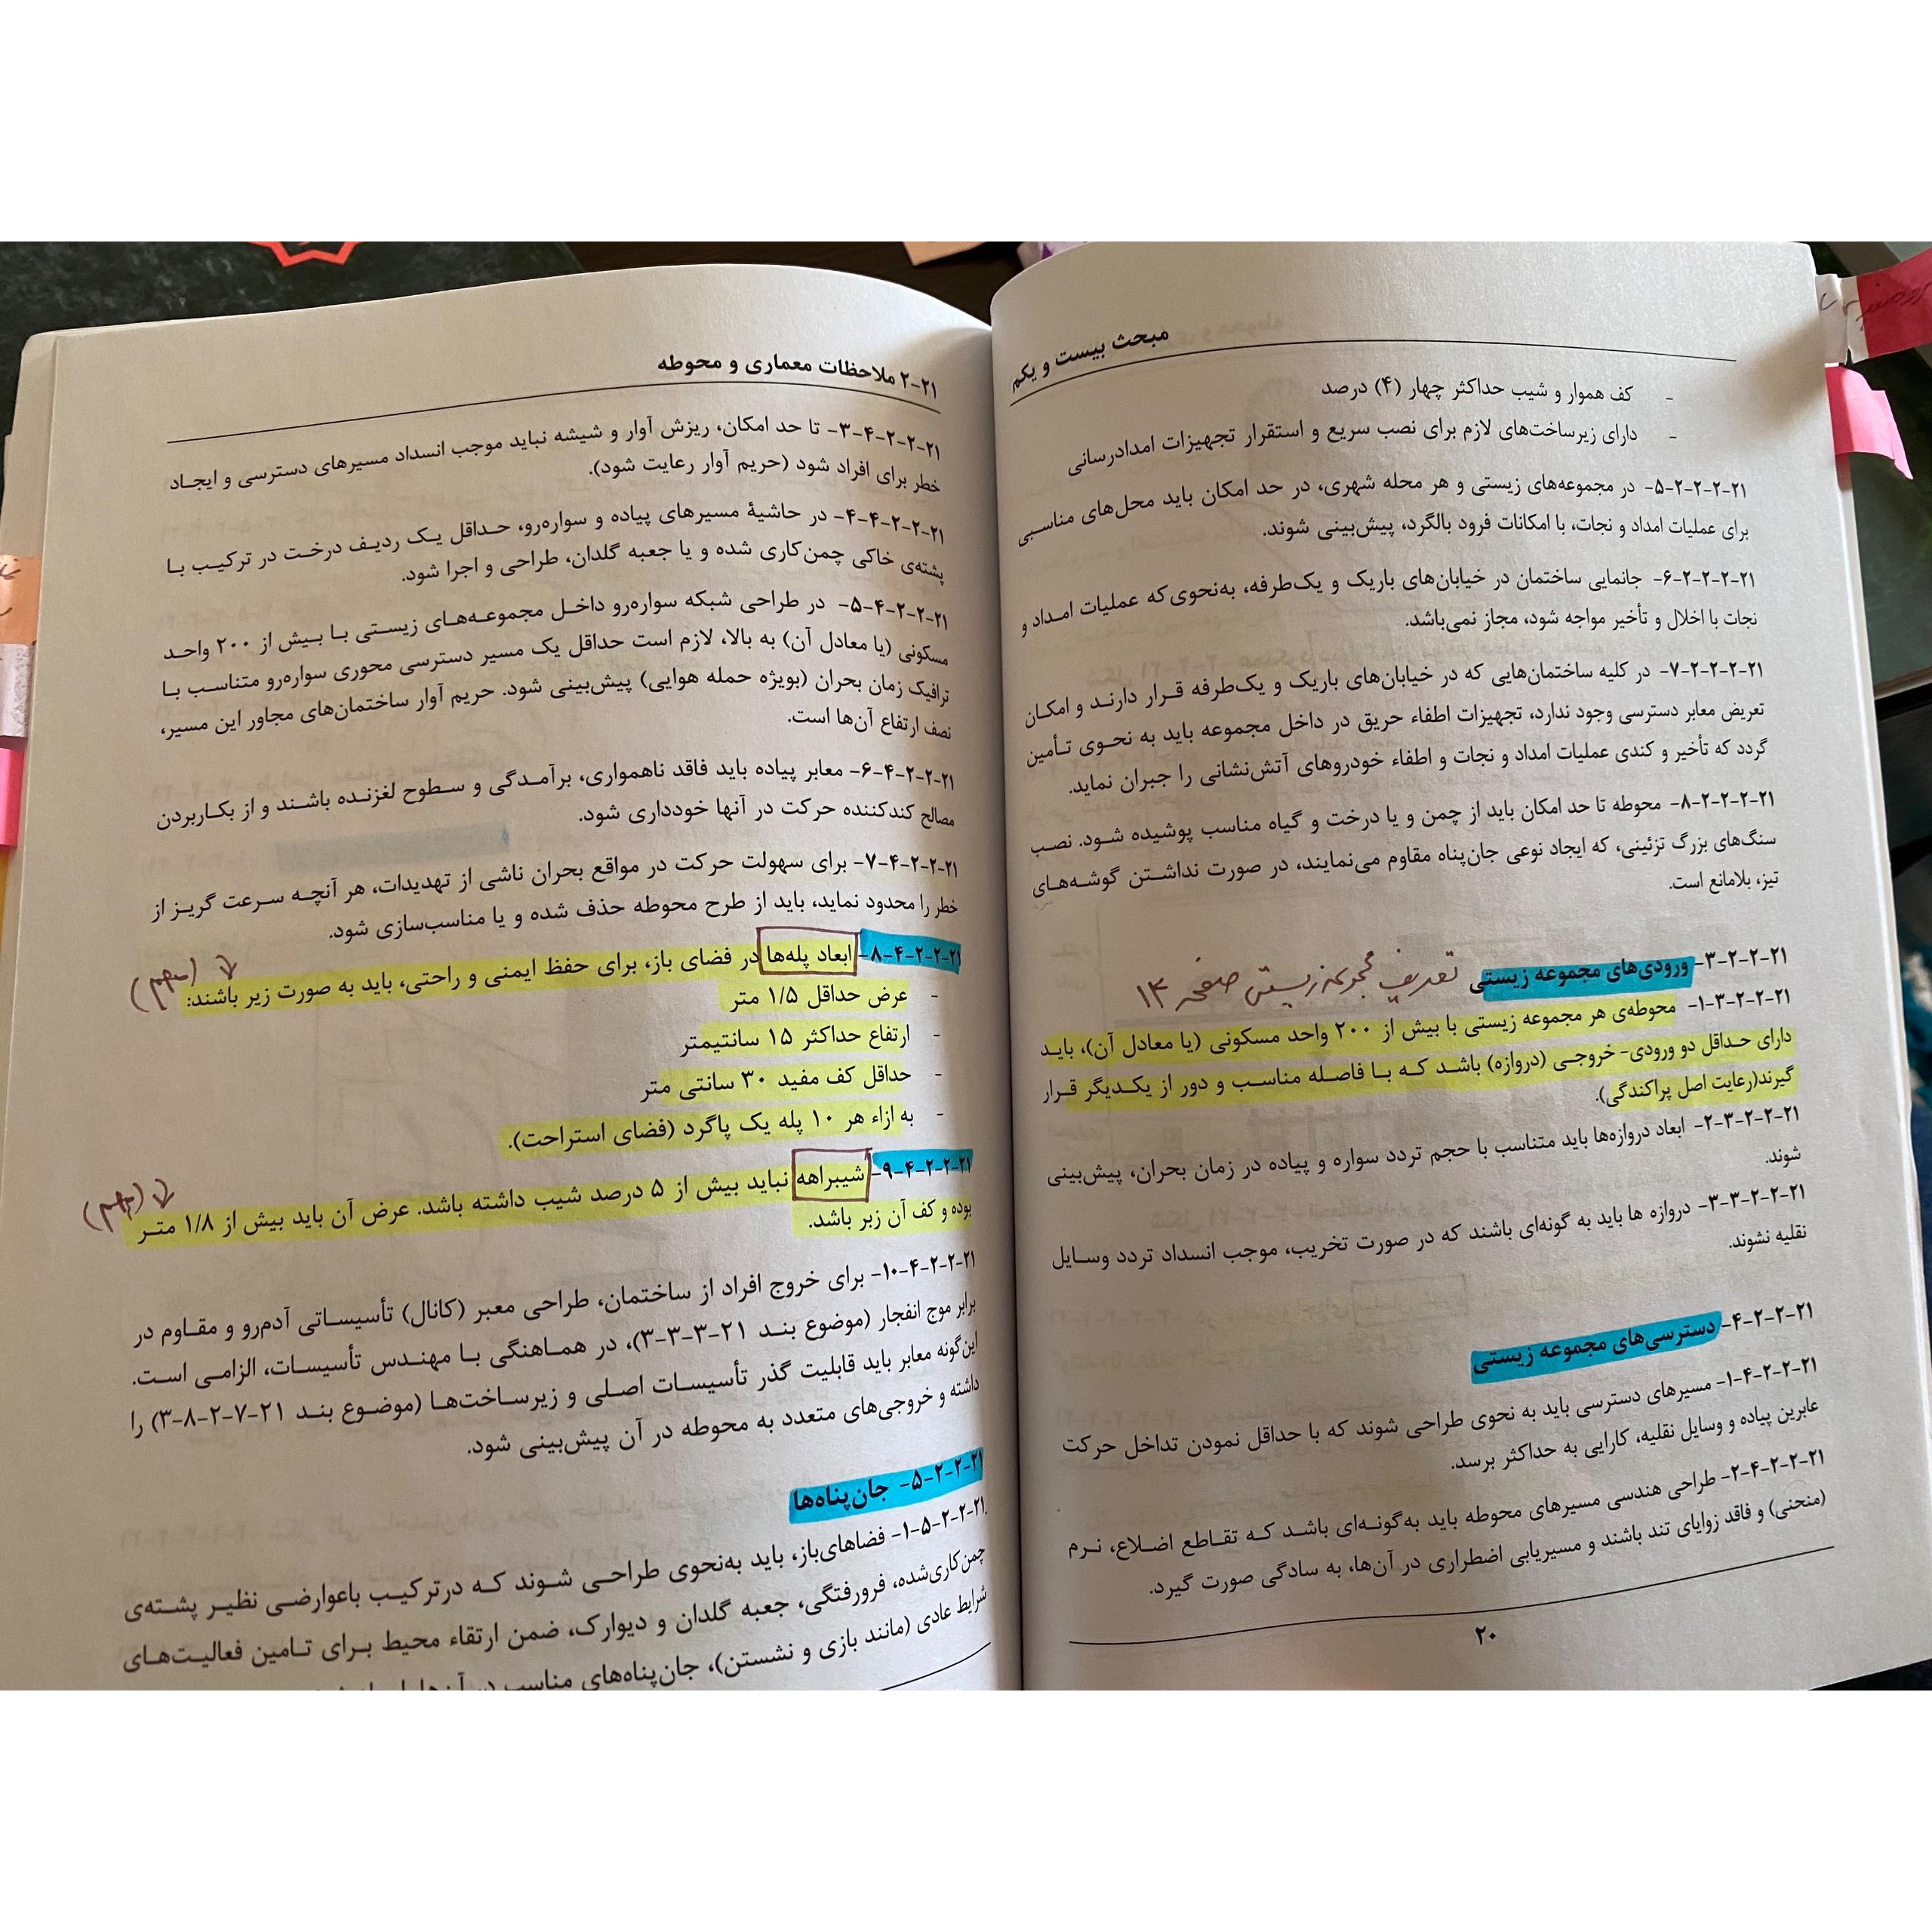 مبحث بیست و یکم
- کف هموار و شیب حداکثر چهار (۴) درصد
- دارای زیرساخت‌های لازم برای نصب سریع و استقرار تجهیزات امدادرسانی
۲۱-۲-۲-۲-۵- در مجموعه‌های زیستی و هر محله شهری، در حد امکان باید محل‌های مناسبی
برای عملیات امداد و نجات، با امکانات فرود بالگرد، پیش‌بینی شوند.
۲۱-۲-۲-۲-۶- جانمایی ساختمان در خیابان‌های باریک و یک‌طرفه، به‌نحوی‌که عملیات امداد و
نجات با اخلال و تأخیر مواجه شود، مجاز نمی‌باشد.
۲۱-۲-۲-۲-۷- در کلیه ساختمان‌هایی که در خیابان‌های باریک و یک‌طرفه قرار دارند و امکان
تعریض معابر دسترسی وجود ندارد، تجهیزات اطفاء حریق در داخل مجموعه باید به نحوی تأمین
گردد که تأخیر و کندی عملیات امداد و نجات و اطفاء خودروهای آتش‌نشانی را جبران نماید.
۲۱-۲-۲-۲-۸- محوطه تا حد امکان باید از چمن و یا درخت و گیاه مناسب پوشیده شود. نصب
سنگ‌های بزرگ تزئینی، که ایجاد نوعی جان‌پناه مقاوم می‌نمایند، در صورت نداشتن گوشه‌های
تیز، بلامانع است.
۲۱-۲-۲-۳- ورودی‌های مجموعه زیستی تعریف مجموعه زیستی صفحه ۱۳
۲۱-۲-۲-۳-۱- محوطه‌ی هر مجموعه زیستی با بیش از ۲۰۰ واحد مسکونی (یا معادل آن)، باید
دارای حداقل دو ورودی- خروجی (دروازه) باشد که با فاصله مناسب و دور از یکدیگر قرار
گیرند(رعایت اصل پراکندگی).
۲۱-۲-۲-۳-۲- ابعاد دروازه‌ها باید متناسب با حجم تردد سواره و پیاده در زمان بحران، پیش‌بینی
شوند.
۲۱-۲-۲-۳-۳- دروازه ها باید به گونه‌ای باشند که در صورت تخریب، موجب انسداد تردد وسایل
نقلیه نشوند.
۲۱-۲-۲-۴- دسترسی‌های مجموعه زیستی
۲۱-۲-۲-۴-۱- مسیرهای دسترسی باید به نحوی طراحی شوند که با حداقل نمودن تداخل حرکت
عابرین پیاده و وسایل نقلیه، کارایی به حداکثر برسد.
۲۱-۲-۲-۴-۲- طراحی هندسی مسیرهای محوطه باید به‌گونه‌ای باشد که تقاطع اضلاع، نرم
(منحنی) و فاقد زوایای تند باشند و مسیریابی اضطراری در آن‌ها، به سادگی صورت گیرد.
۲۰
۲۱-۲ ملاحظات معماری و محوطه
۲۱-۲-۲-۴-۳- تا حد امکان، ریزش آوار و شیشه نباید موجب انسداد مسیرهای دسترسی و ایجاد
خطر برای افراد شود (حریم آوار رعایت شود).
۲۱-۲-۲-۴-۴- در حاشیۀ مسیرهای پیاده و سواره‌رو، حداقل یک ردیف درخت در ترکیب با
پشته‌ی خاکی چمن‌کاری شده و یا جعبه گلدان، طراحی و اجرا شود.
۲۱-۲-۲-۴-۵- در طراحی شبکه سواره‌رو داخل مجموعه‌های زیستی با بیش از ۲۰۰ واحد
مسکونی (یا معادل آن) به بالا، لازم است حداقل یک مسیر دسترسی محوری سواره‌رو متناسب با
ترافیک زمان بحران (بویژه حمله هوایی) پیش‌بینی شود. حریم آوار ساختمان‌های مجاور این مسیر،
نصف ارتفاع آن‌ها است.
۲۱-۲-۲-۴-۶- معابر پیاده باید فاقد ناهمواری، برآمدگی و سطوح لغزنده باشند و از بکاربردن
مصالح کندکننده حرکت در آنها خودداری شود.
۲۱-۲-۲-۴-۷- برای سهولت حرکت در مواقع بحران ناشی از تهدیدات، هر آنچه سرعت گریز از
خطر را محدود نماید، باید از طرح محوطه حذف شده و یا مناسب‌سازی شود.
۲۱-۲-۲-۴-۸- ابعاد پله‌ها در فضای باز، برای حفظ ایمنی و راحتی، باید به صورت زیر باشند: (مهم)
- عرض حداقل ۱/۵ متر
- ارتفاع حداکثر ۱۵ سانتیمتر
- حداقل کف مفید ۳۰ سانتی متر
- به ازاء هر ۱۰ پله یک پاگرد (فضای استراحت).
۲۱-۲-۲-۴-۹- شیبراهه نباید بیش از ۵ درصد شیب داشته باشد. عرض آن باید بیش از ۱/۸ متر (مهم)
بوده و کف آن زبر باشد.
۲۱-۲-۲-۴-۱۰- برای خروج افراد از ساختمان، طراحی معبر (کانال) تأسیساتی آدم‌رو و مقاوم در
برابر موج انفجار (موضوع بند ۲۱-۳-۳-۳)، در هماهنگی با مهندس تأسیسات، الزامی است.
این‌گونه معابر باید قابلیت گذر تأسیسات اصلی و زیرساخت‌ها (موضوع بند ۲۱-۷-۲-۸-۳) را
داشته و خروجی‌های متعدد به محوطه در آن پیش‌بینی شود.
۲۱-۲-۲-۵- جان‌پناه‌ها
۲۱-۲-۲-۵-۱- فضاهای‌باز، باید به‌نحوی طراحی شوند که درترکیب باعوارضی نظیر پشته‌ی
چمن‌کاری‌شده، فرورفتگی، جعبه گلدان و دیوارک، ضمن ارتقاء محیط برای تامین فعالیت‌های
شرایط عادی (مانند بازی و نشستن)، جان‌پناه‌های مناسب